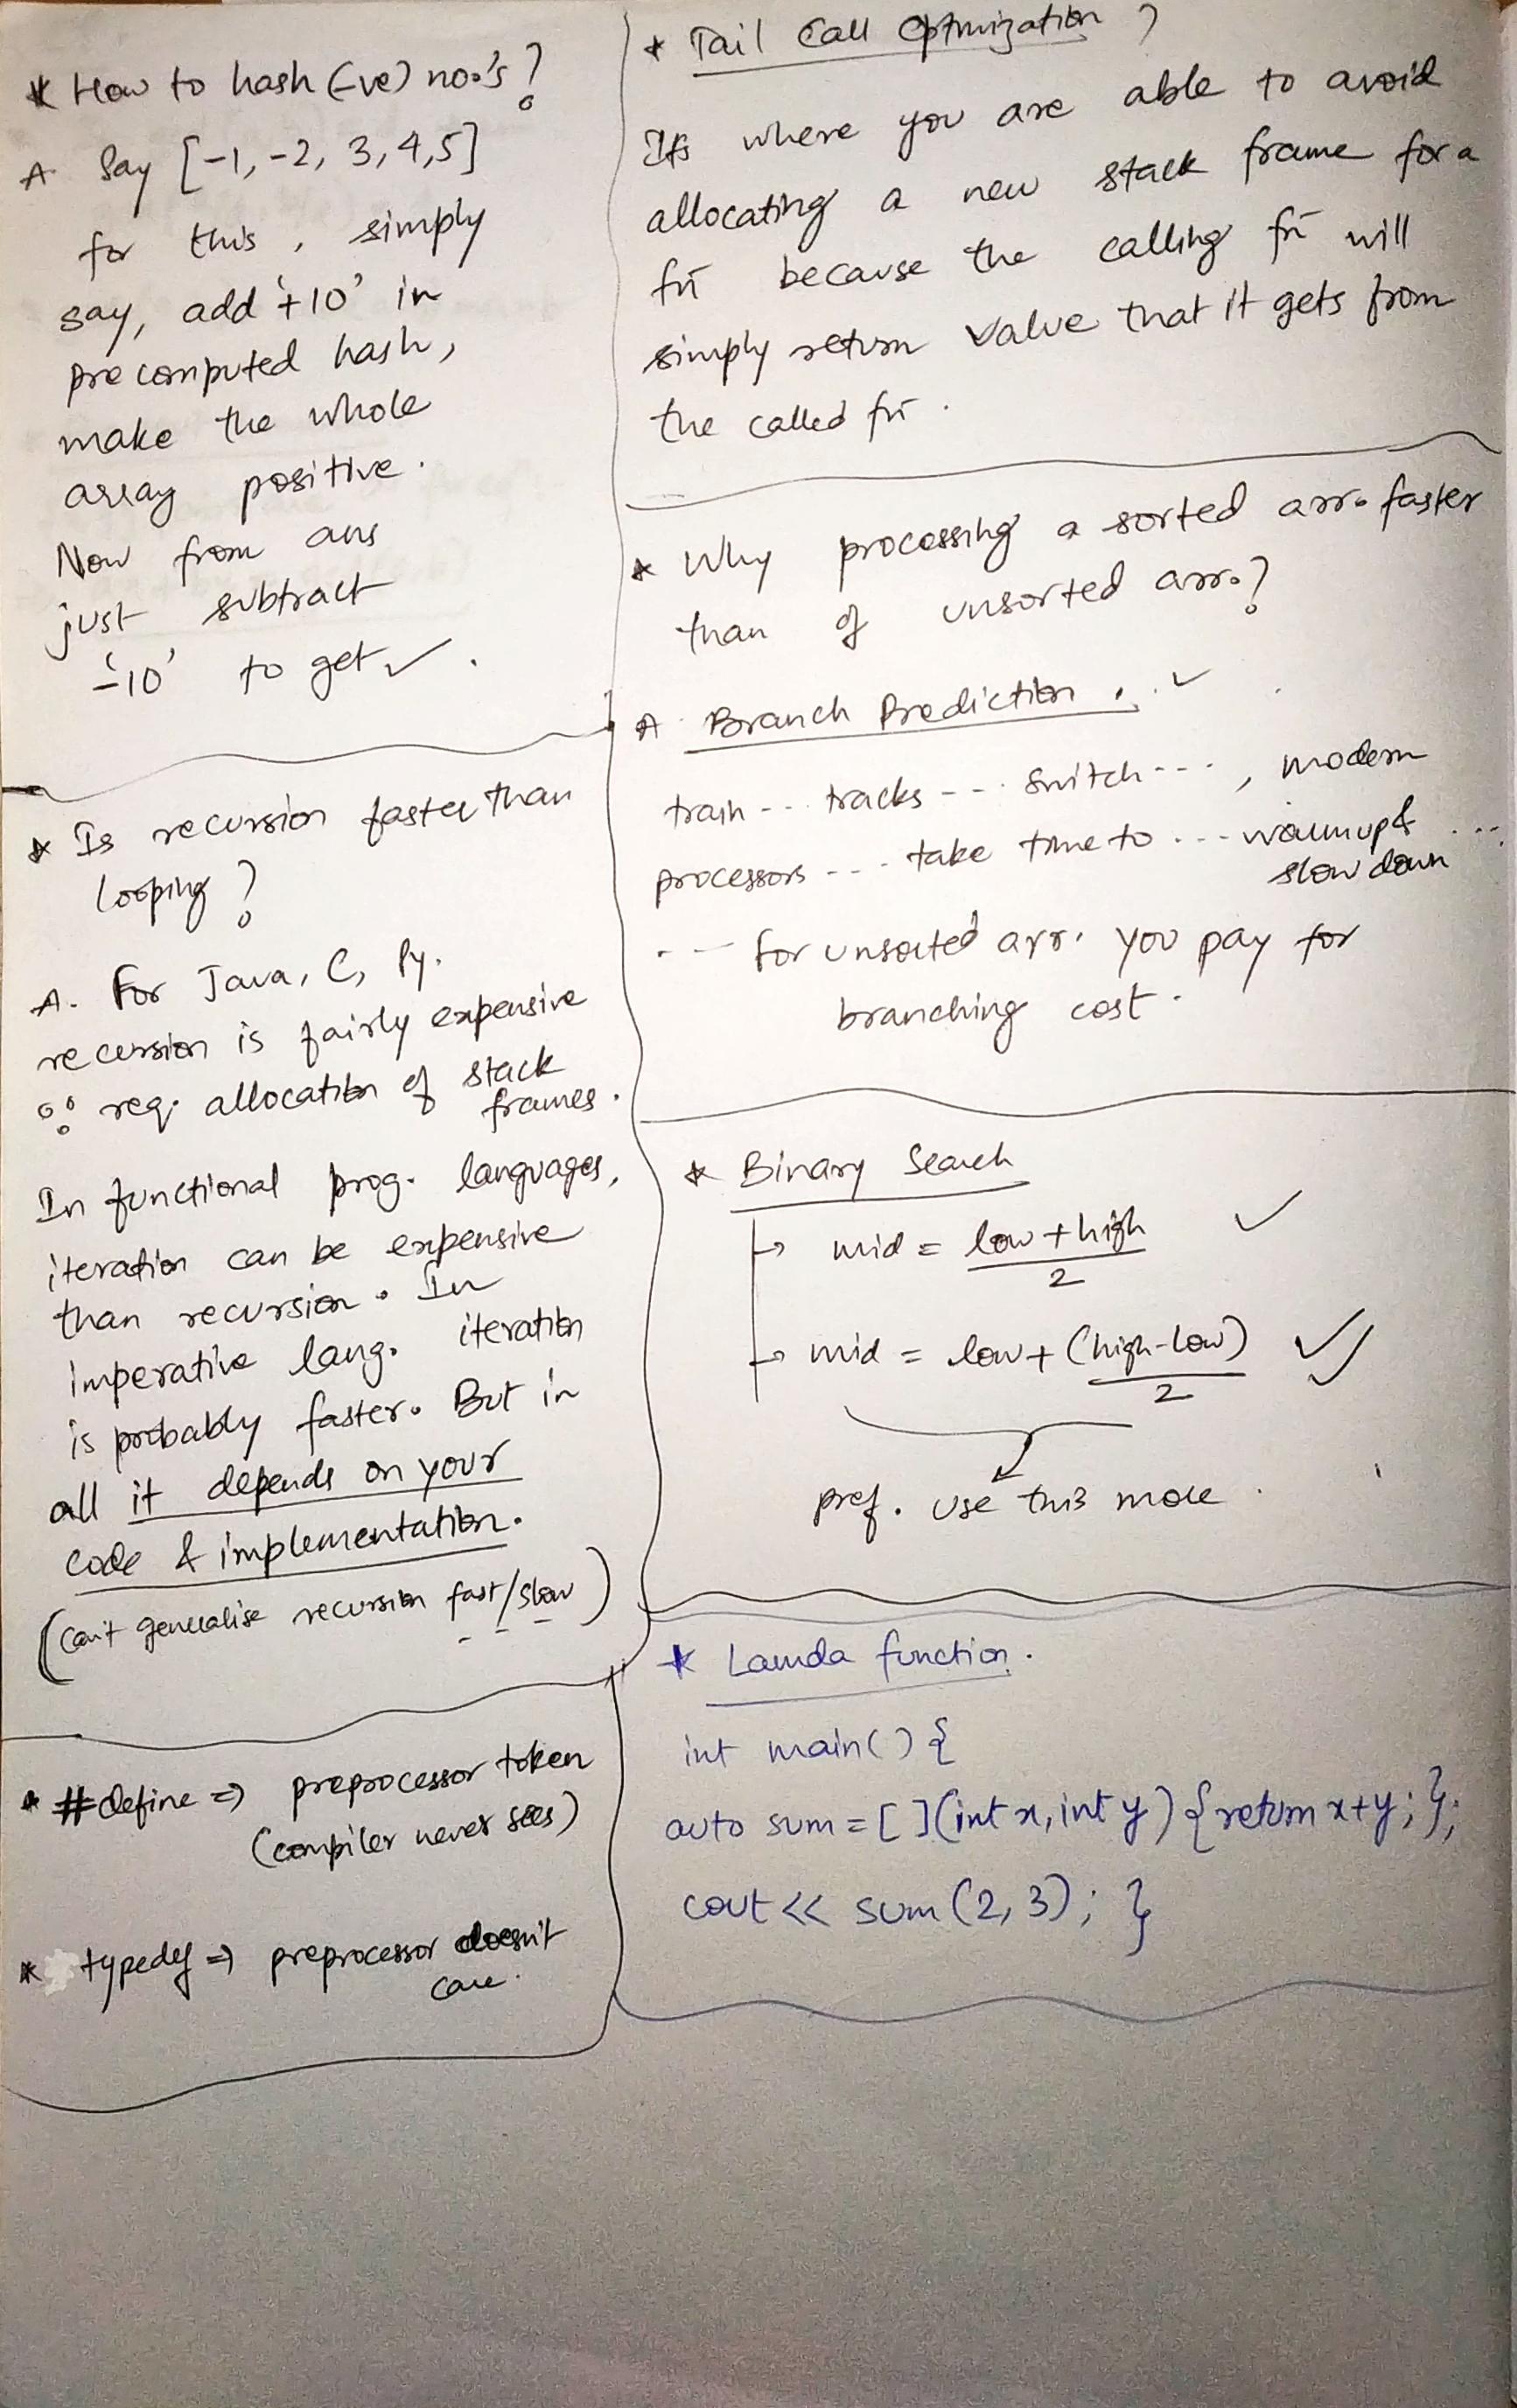 * How to hash (-ve) no.'s?
A. Say [-1, -2, 3, 4, 5]
for this, simply
say, add '+10' in
precomputed hash,
make the whole
array positive.
Now from ans
just subtract
'-10' to get ✓.
* Is recursion faster than
looping?
A. For Java, C, Py.
recursion is fairly expensive
∵ req. allocation of stack
frames.
In functional prog. languages,
iteration can be expensive
than recursion. In
imperative lang. iteration
is probably faster. But in
all it depends on your
code & implementation.
(can't generalise recursion fast/slow)
* #define => preprocessor token
(compiler never sees)
* typedef => preprocessor doesn't
care.
* Tail Call Optimization ?
It's where you are able to avoid
allocating a new stack frame for a
fn̄ because the calling fn̄ will
simply return value that it gets from
the called fn̄.
* Why processing a sorted arr. faster
than of unsorted arr.?
A. Branch Prediction. ✓
train -- tracks --- switch ---, modern
processors --- take time to --- warmup & ...
slow down
--- for unsorted arr. you pay for
branching cost.
* Binary Search
→ mid = low + high ✓
2
→ mid = low + (high-low) ✓✓
2
pref. use this more.
* Lamda function.
int main() {
auto sum = [](int x, int y) {return x+y; };
cout << sum(2, 3); }